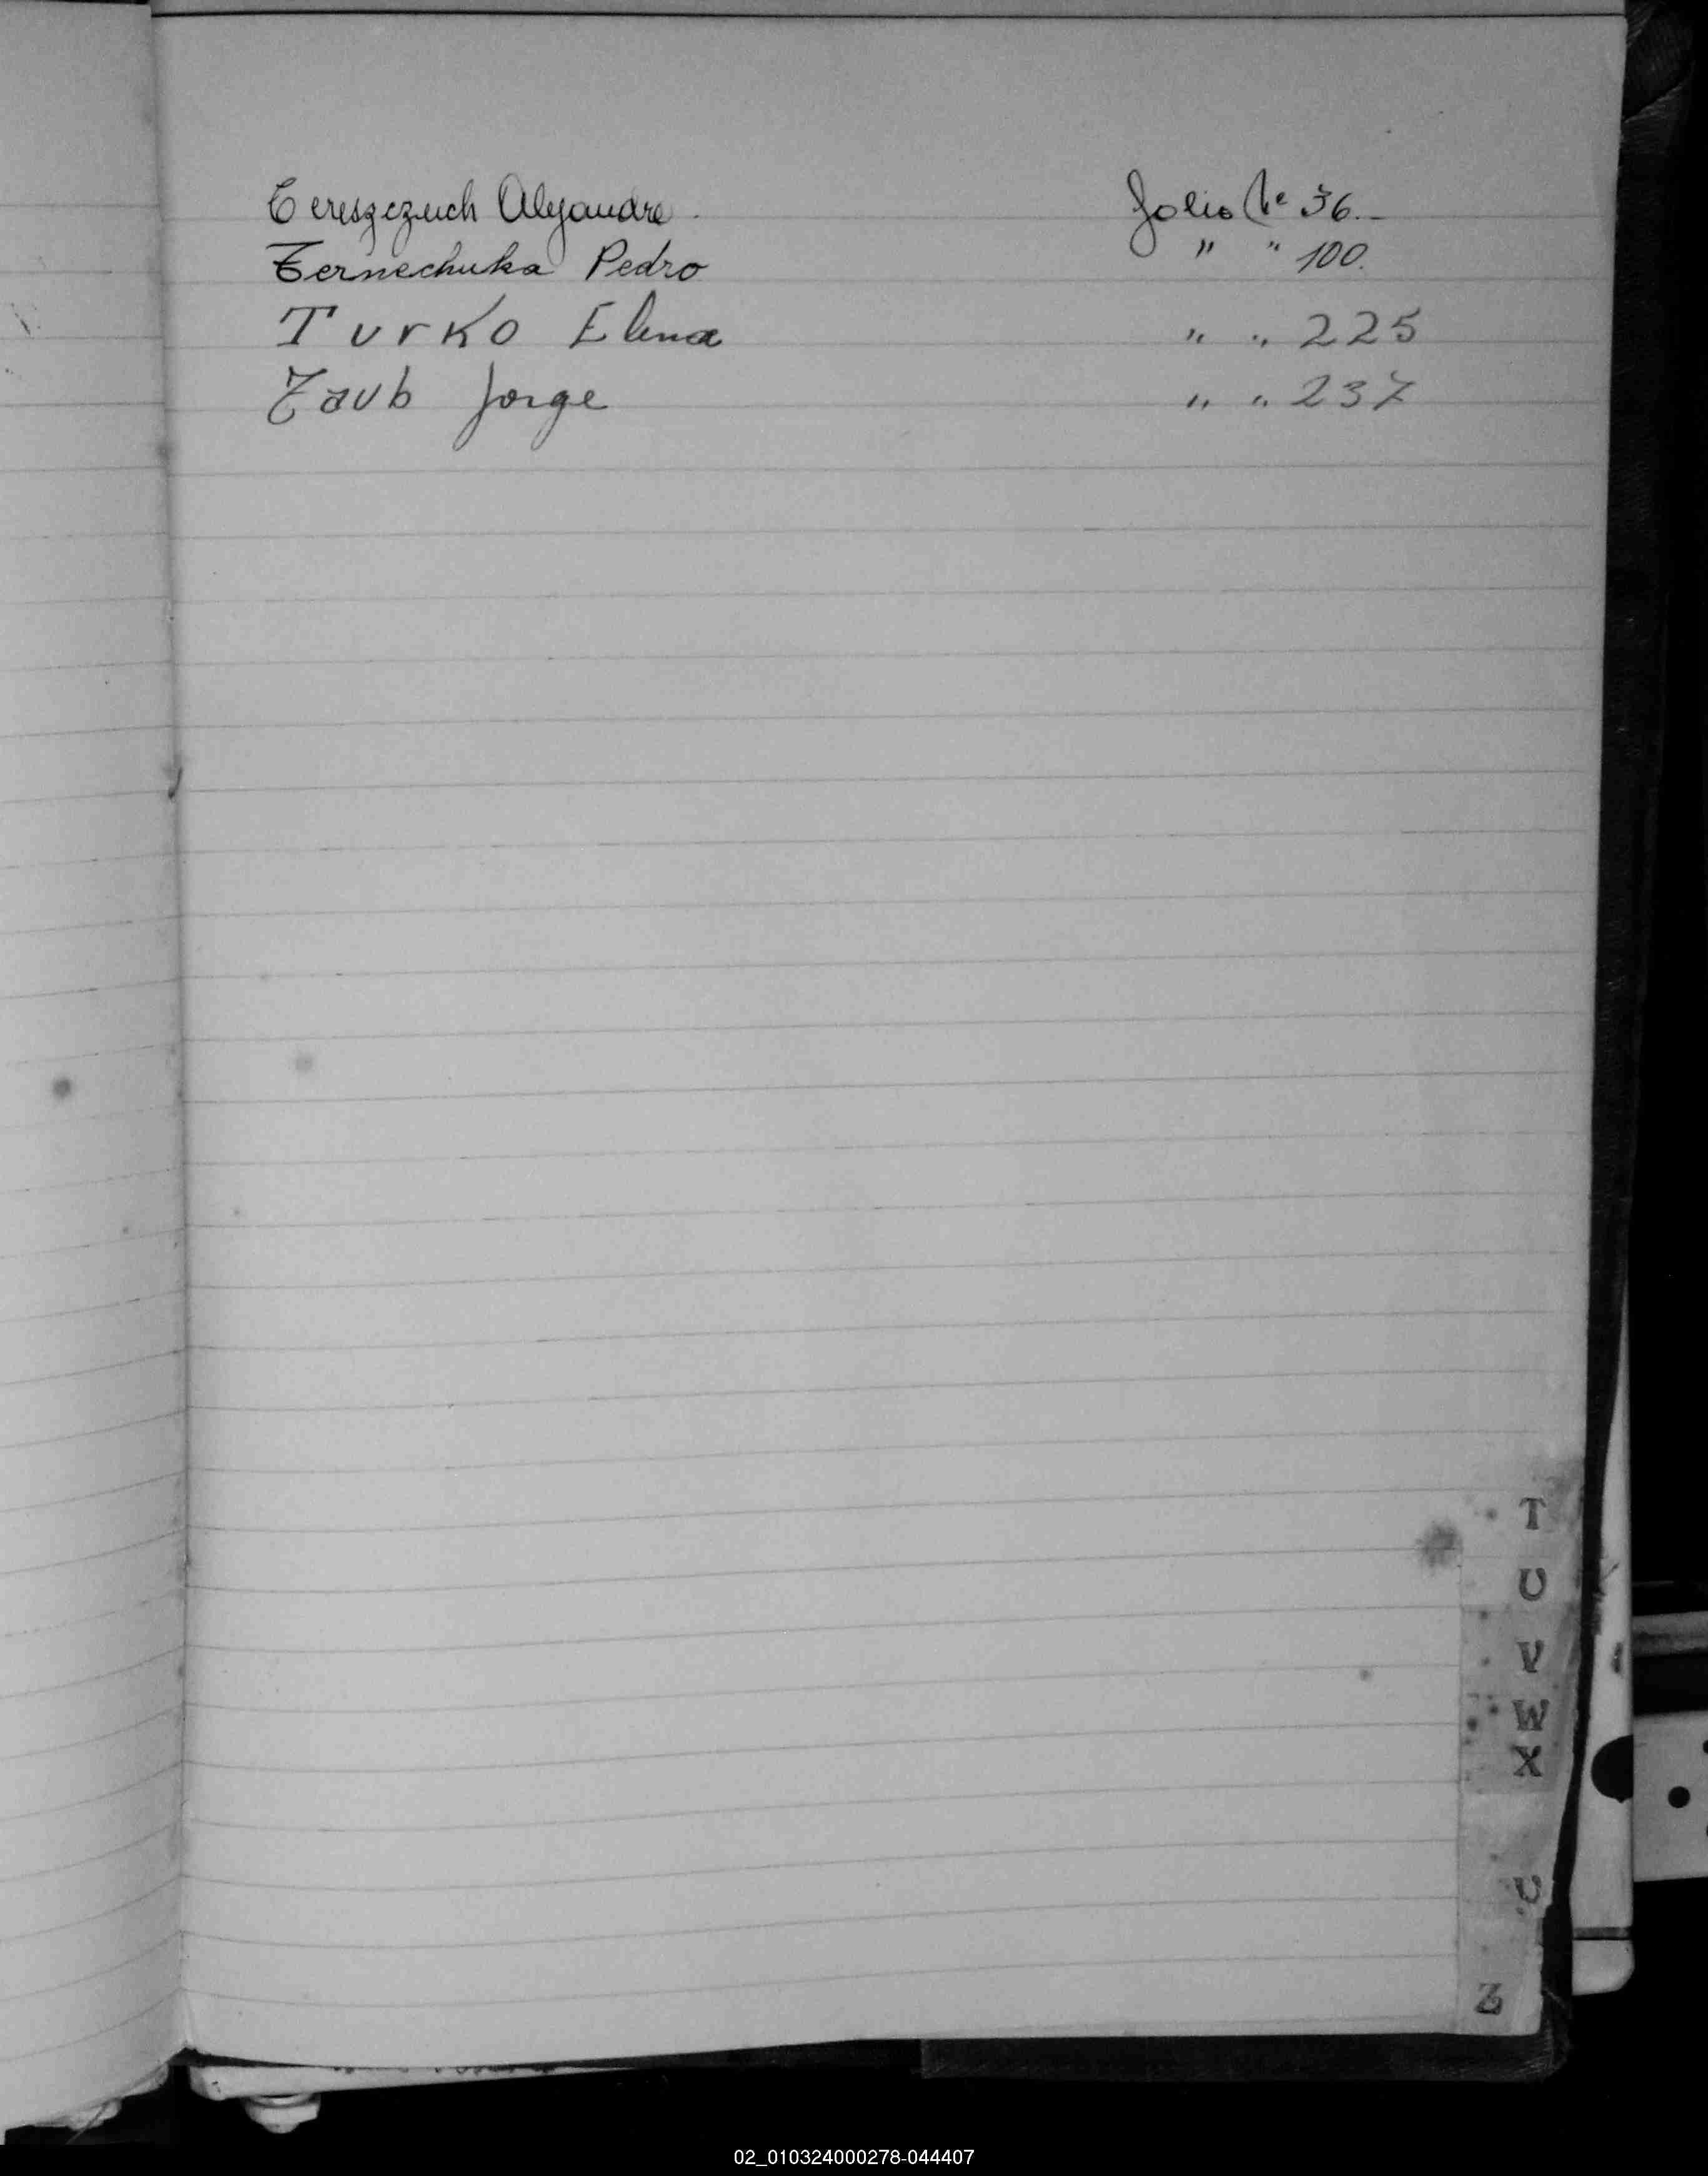 Tereszczuch Alejandro. Folio No 36.-
Ternechuka Pedro " " 100.
Turko Elena " " 225
Taub Jorge " " 237
T
U
V
W
X
Z
02_010324000278-044407